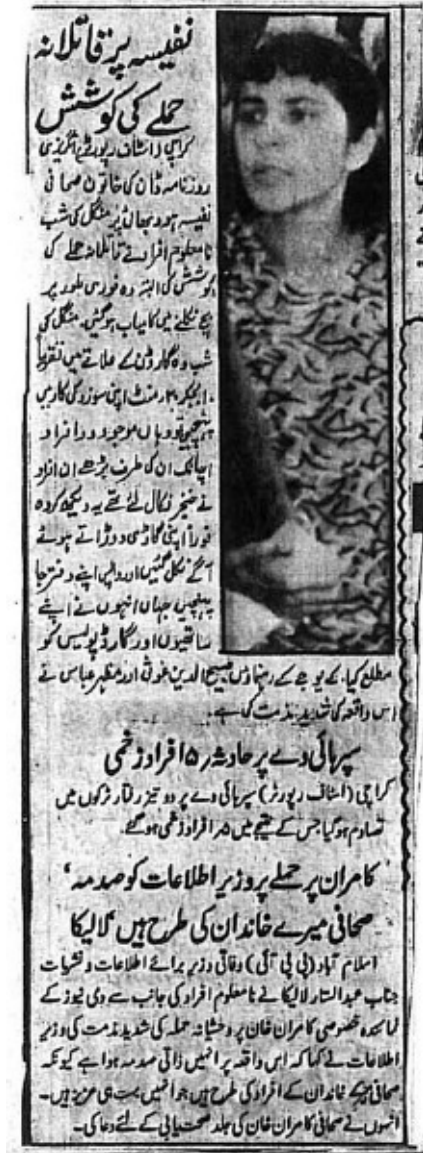 نفیسہ پر قاتلانہ
حملے کی کوشش
کراچی (اسٹاف رپورٹر) انگریزی
روزنامہ ڈان کی خاتون صحافی
نفیسہ ہود بھائی پر منگل کی شب
نامعلوم افراد نے قاتلانہ حملے کی
کوشش کی البتہ وہ فوری طور پر
بچ نکلنے میں کامیاب ہو گئیں۔ منگل کی
شب وہ گارڈن کے علاقے میں تقریباً
۱۰ بجکر ۲۰ منٹ اپنی سوزوکی کار میں
پہنچیں تو وہاں موجود دو افراد
اچانک ان کی طرف بڑھے ان افراد
نے خنجر نکال لئے تھے یہ دیکھ کر وہ
فوراً اپنی گاڑی دوڑاتے ہوئے
آگے نکل گئیں اور واپس اپنے دفتر جا
پہنچیں جہاں انہوں نے اپنے
ساتھیوں اور گارڈ پولیس کو
مطلع کیا، کے یو جے کے رہنماؤں مسیح الدین غوثی اور مظہر عباس نے
اس واقعہ کی شدید مذمت کی ہے۔
سپرہائی وے پر حادثہ ۱۵ افراد زخمی
کراچی (اسٹاف رپورٹر) سپرہائی وے پر دو تیز رفتار ٹرکوں میں
تصادم ہو گیا جس کے نتیجے میں ۱۵ افراد زخمی ہو گئے۔
کامران پر حملے پر وزیر اطلاعات کو صدمہ ‘
صحافی میرے خاندان کی طرح ہیں لالیکا
اسلام آباد (پی پی آئی) وفاقی وزیر برائے اطلاعات و نشریات
جناب عبدالستار لالیکا نے نامعلوم افراد کی جانب سے دی نیوز کے
نمائندہ خصوصی کامران خان پر وحشیانہ حملہ کی شدید مذمت کی وزیر
اطلاعات نے کہا کہ اس واقعہ پر انہیں ذاتی صدمہ ہوا ہے کیونکہ
صحافی میرے خاندان کے افراد کی طرح ہیں جو انہیں بہت ہی عزیز ہیں۔
انہوں نے صحافی کامران خان کی جلد صحت یابی کے لئے دعا کی۔